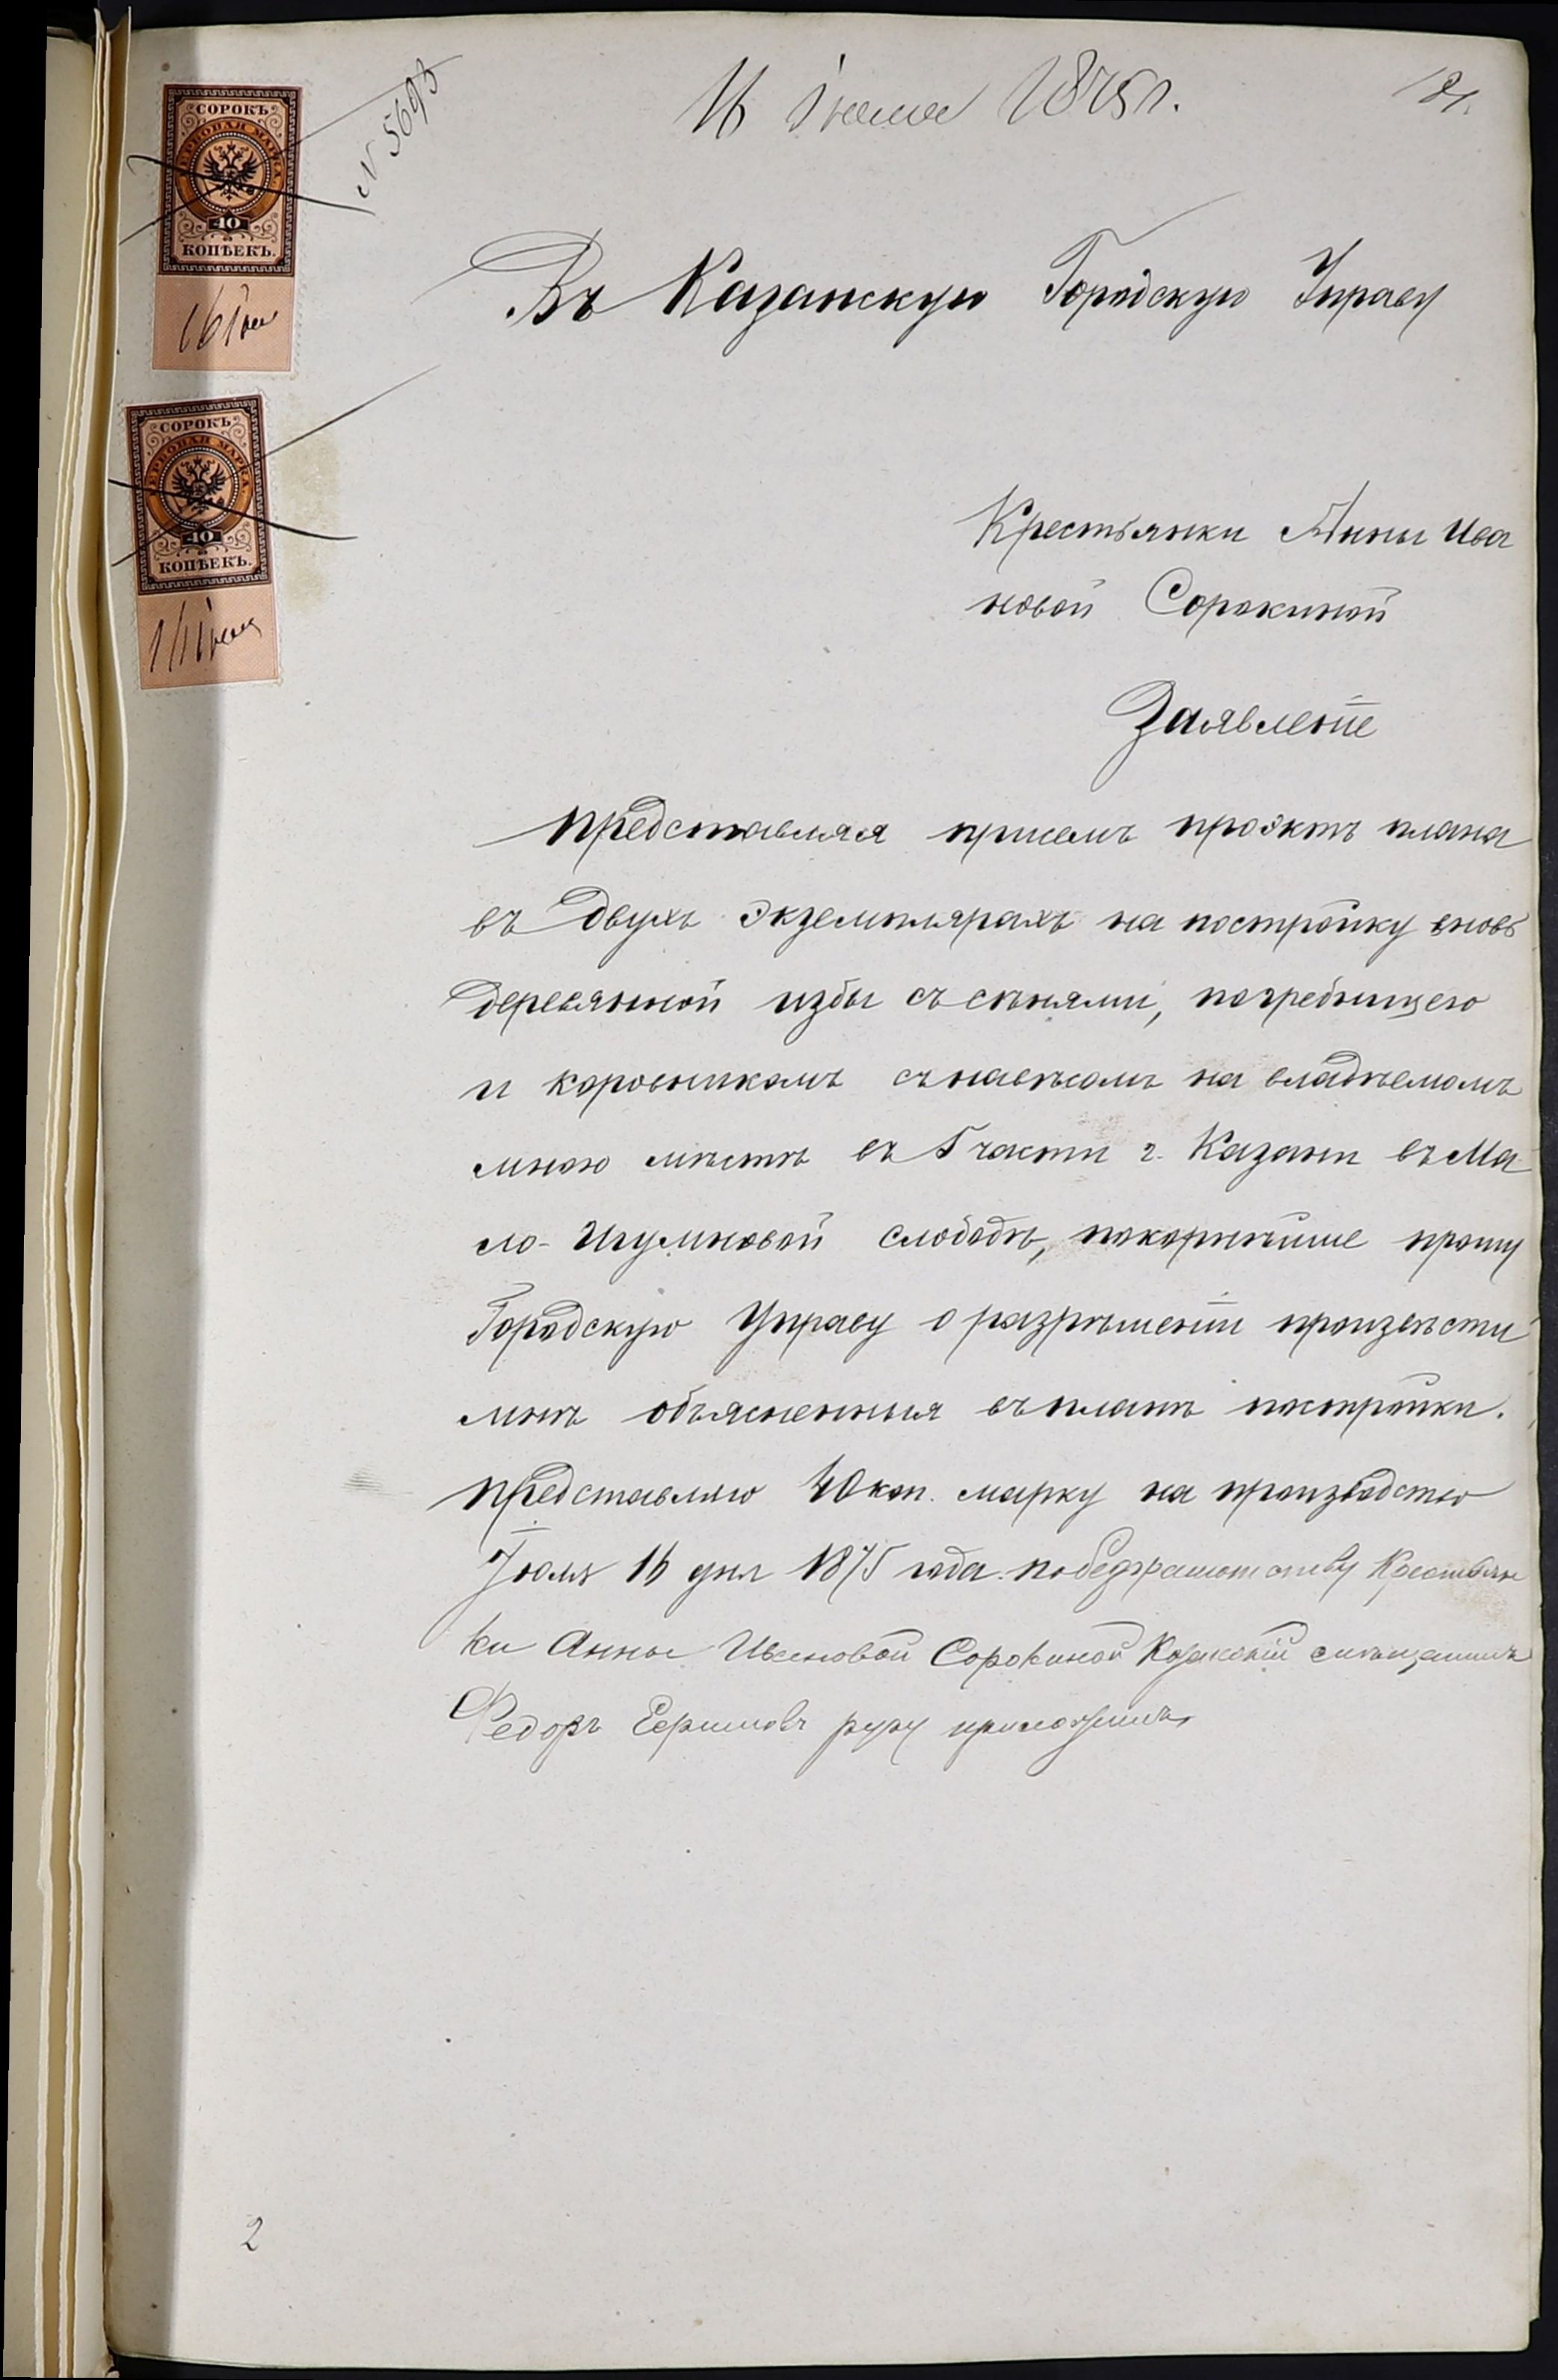 16 Іюля 1875 г.
СОРОКЪ
ГЕРБОВАЯ МАРКА
40
КОПѢЕКЪ.
16 Іюл
N 5693
Въ Казанскую Городскую Управу
СОРОКЪ
ГЕРБОВАЯ МАРКА
40
КОПѢЕКЪ.
16 Іюля
Крестьянки Анны Ива
новой Сорокиной
Заявленіе
Представляя присемъ проэктъ плана
въ двухъ экземплярахъ на постройку вновь
деревянной избы съ сѣнями, погребницею
и коровникомъ съ навѣсомъ на владѣемомъ
мною мѣстѣ въ 5 части г. Казани въ Ма
ло-Игумновой слободѣ, покорнѣйше прошу
Городскую Управу о разрѣшеніи произвѣсти
мнѣ объясненныя въ планѣ постройки.
Представляю 40 коп. марку на производство
Іюля 16 дня 1875 года. По безграмотству Крестьян
ки Анны Ивановой Сорокиной Казанскій
Федоръ руку приложилъ
2